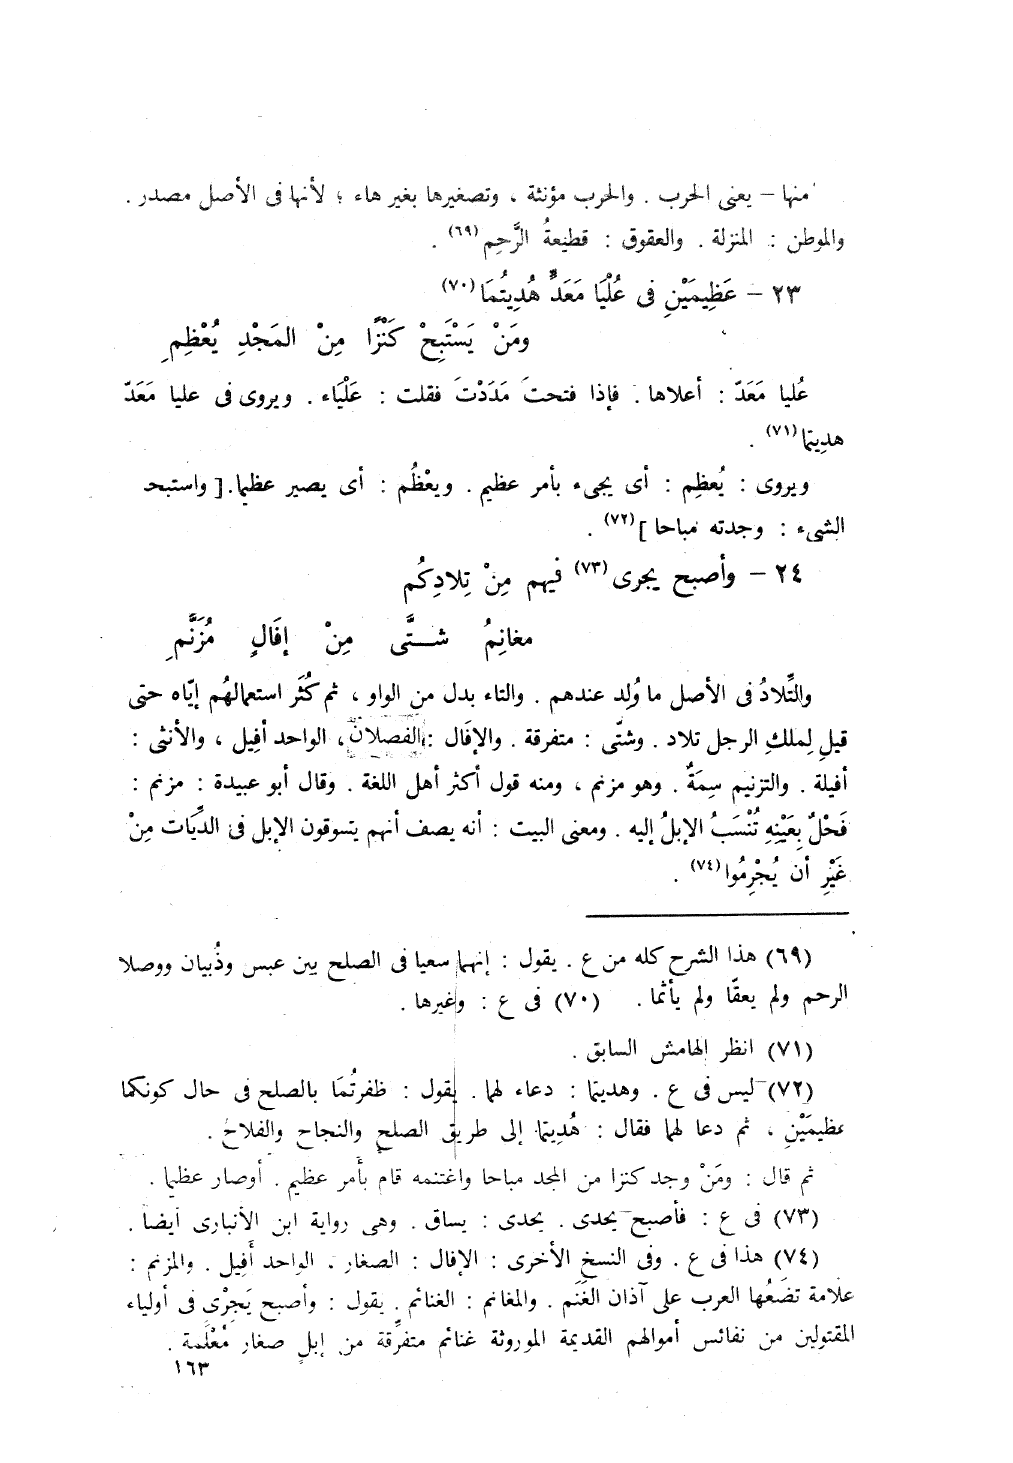 منها – يعنى الحرب . والحرب مؤنثة ، وتصغيرها بغير هاء ؛ لأنها فى الأصل مصدر .
والموطن : المنزلة . والعقوق : قطيعةُ الرَّحِم (٦٩) .
٢٣ – عَظِيمَيْنِ فى عُلْيَا مَعَدٍّ هُدِيتُمَا (٧٠)
ومَنْ يَسْتَبِحْ كَنْزًا مِنْ المَجْدِ يُعْظِمِ
عُليا مَعَدّ : أعلاها . فإذا فتحتَ مَدَدْتَ فقلت : عَلْيَاء . ويروى فى عليا مَعَدّ
هدِيتما (٧١) .
ويروى : يُعظِم : أى يجىء بأمر عظيم . ويعْظُم : أى يصير عظيما . [ واستبحـ
الشىء : وجدته مباحا ] (٧٢) .
٢٤ – وأصبح يجرى (٧٣) فيهم مِنْ تِلادِكُم
مغانِمُ شـــتَّى مِنْ إفَالٍ مُزَنَّمِ
والتِّلادُ فى الأصل ما وُلِد عندهم . والتاء بدل من الواو ، ثم كُثَر استعمالهُم إيّاه حتى
قيل لِملكِ الرجل تلاد . وشتّى : متفرقة . والإفَال : الفصلان ، الواحد أفِيل ، والأنثى :
أفيلة . والتزنيم سِمَةٌ . وهو مزنم ، ومنه قول أكثر أهل اللغة . وقال أبو عبيدة : مزنم :
فَحْلٌ بِعَيْنِهِ تُنْسَبُ الإبلُ إليه . ومعنى البيت : أنه يصف أنهم يتسوقون الإبل فى الدِّيَات مِنْ
غَيْرِ أن يُجْرِمُوا (٧٤) .
(٦٩) هذا الشرح كله من ع . يقول : إنهما سعيا فى الصلح بين عبس وذُبيان ووصلا
الرحم ولم يعقّا ولم يأثما . (٧٠) فى ع : وغيرها .
(٧١) انظر الهامش السابق .
(٧٢) ليس فى ع . وهديتما : دعاء لهما . يقول : ظفرتُمَا بالصلح فى حال كونكما
عظيمَيْنِ ، ثم دعا لهما فقال : هُدِيتما إلى طريق الصلح والنجاح والفلاح .
ثم قال : ومَنْ وجد كنزا من المجد مباحا واغتنمه قام بأمر عظيم . أو صار عظيما .
(٧٣) فى ع : فأصبح يحدى . يحدى : يساق . وهى رواية ابن الأنبارى أيضا .
(٧٤) هذا فى ع . وفى النسخ الأخرى : الإفال : الصغار . الواحد أَفِيل . والمزنم :
علامة تضَعُها العرب على آذان الغَنَم . والمغانم : الغنائم . يقول : وأصبح يَجِرْى فى أولياء
المقتولين من نفائس أموالهم القديمة الموروثة غنائم متفرِّقة من إبلٍ صغار مُعْلَمة .
١٦٣